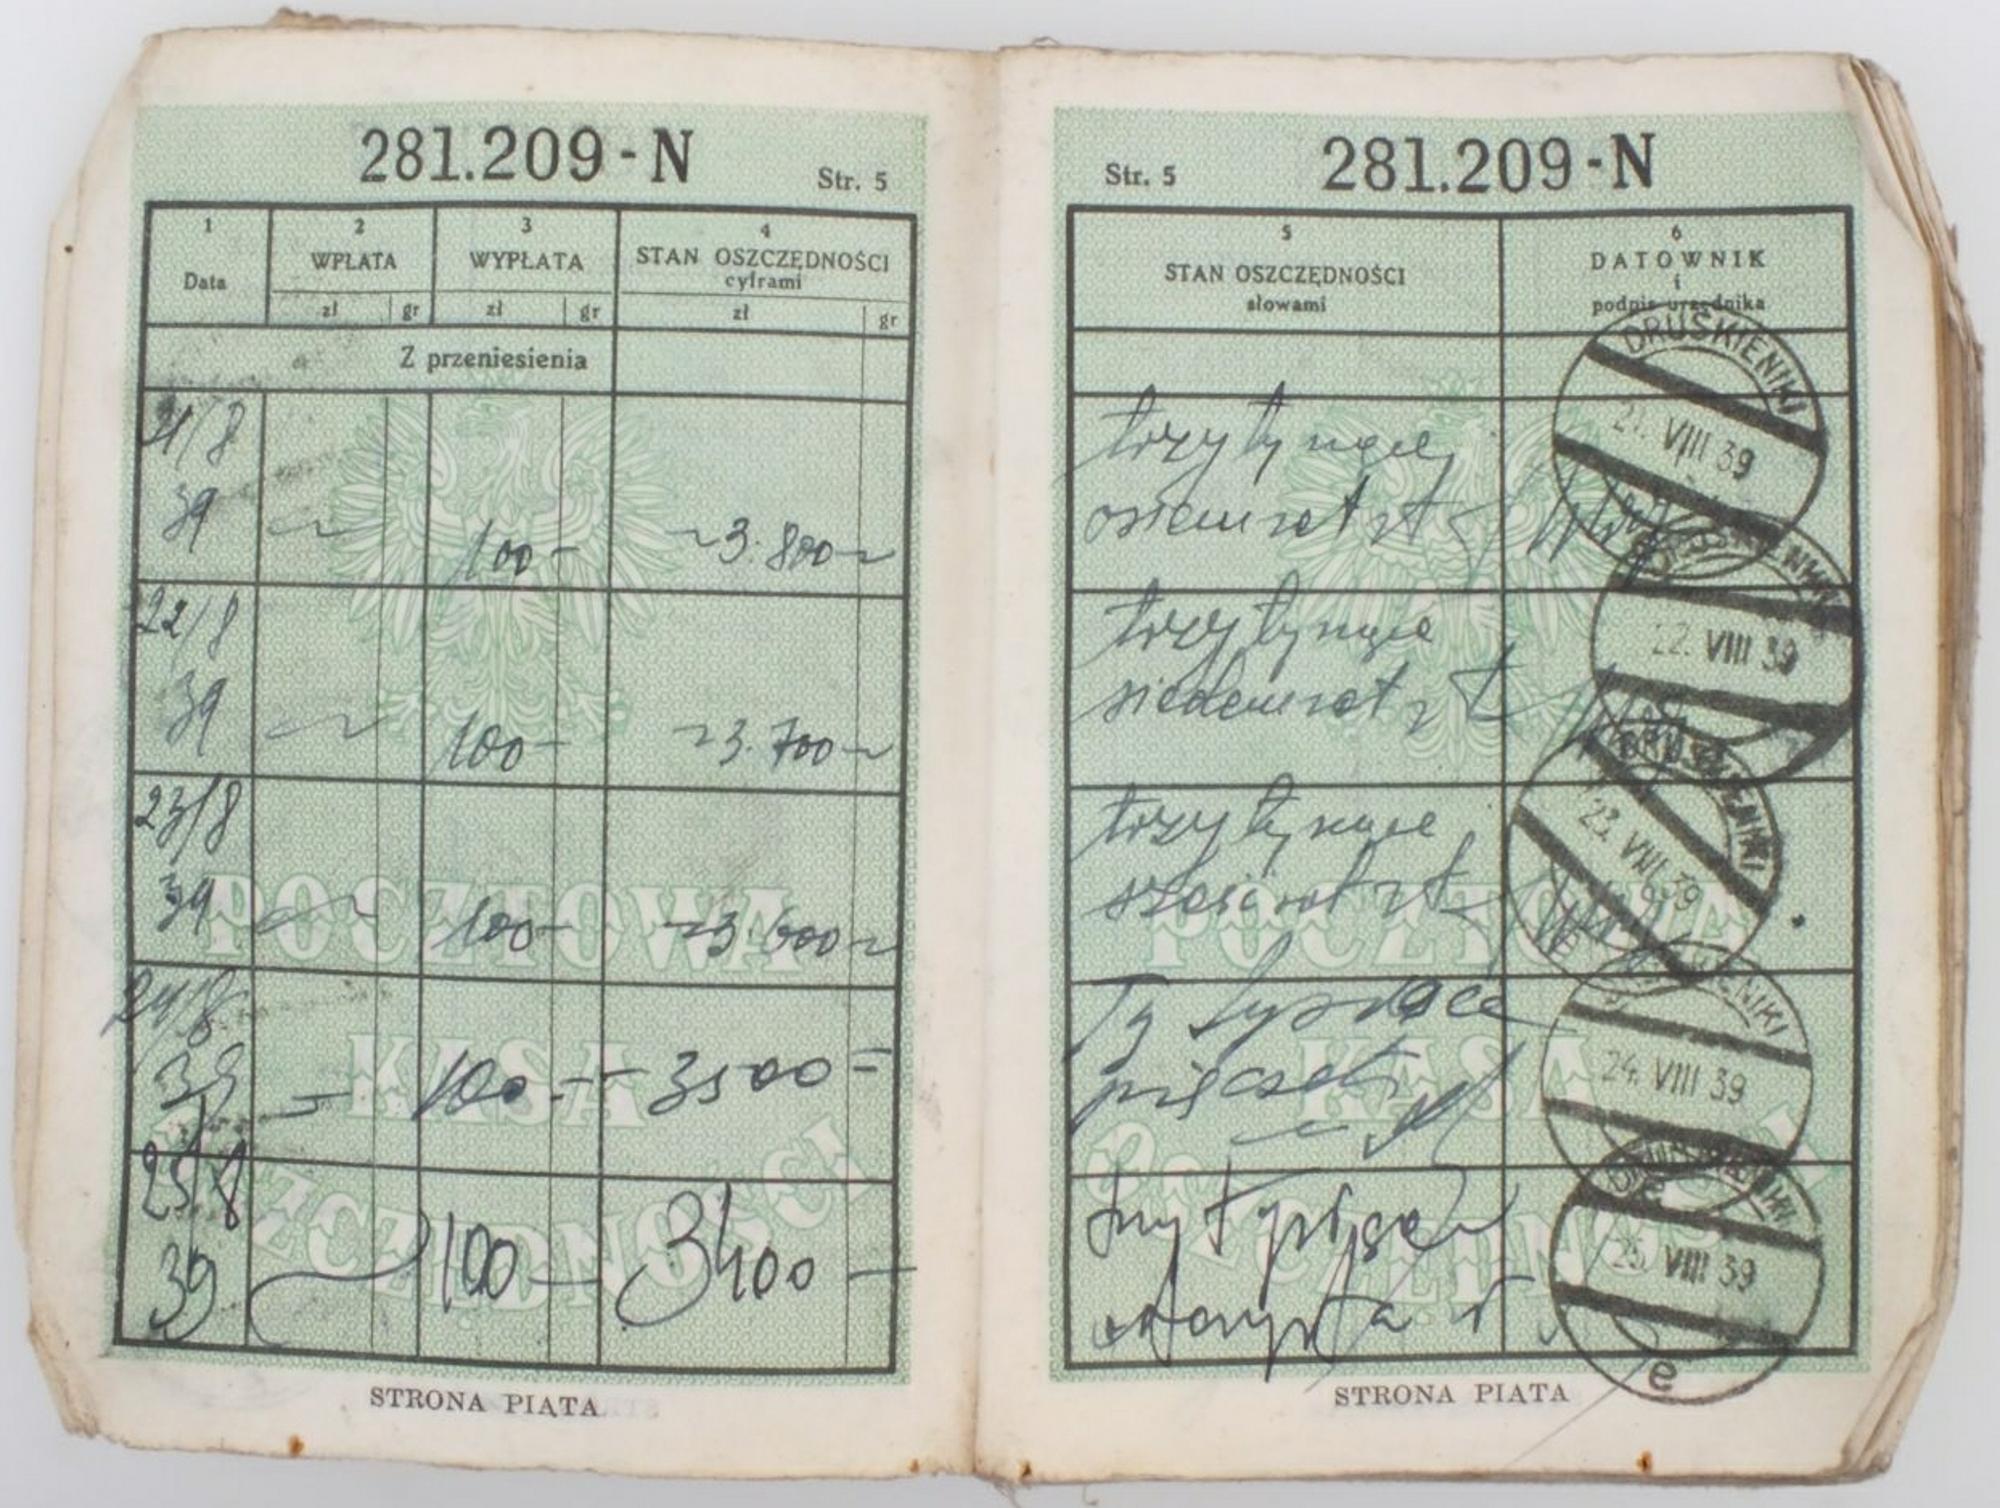 281.209-N
Str. 5
1
Data
2
WPŁATA
zł gr
3
WYPŁATA
zł gr
4
STAN OSZCZĘDNOŚCI
cyframi
zł gr
Z przeniesienia
21/8
39 100- 3.800
22/8
39 100- 3.700
23/8
39 100- 3.600
24/8
39 100- 3500
25/8
39 100 3400
POCZTOWA
KASA
OSZCZĘDNOŚCI
STRONA PIĄTA
Str. 5
281.209-N
5
STAN OSZCZĘDNOŚCI
słowami
6
DATOWNIK
i
podpis urzędnika
trzy tysiące
osiemset zł
DRUSKIENIKI
21. VIII 39
trzy tysiące
siedemset zł
22. VIII 39
trzy tysiące
sześćset zł
DRUSKIENIKI
23. VIII 39
tysiące
pięćset zł
24. VIII 39
trzy tysiące
czterysta zł
DRUSKIENIKI
25. VIII 39
e
POCZTOWA
KASA
STRONA PIĄTA